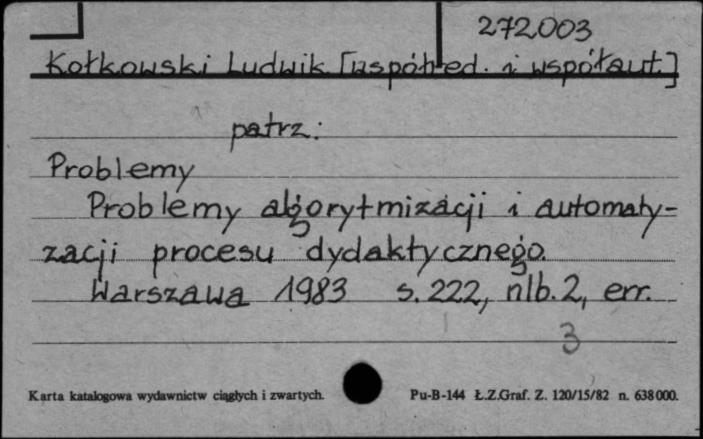 272003
Kołkowski Ludwik [współred. i współaut.]
patrz:
Problemy
Problemy algorytmizacji i automaty-
zacji procesu dydaktycznego.
Warszawa 1983 s. 222, nlb. 2, err.
3
Karta katalogowa wydawnictw ciągłych i zwartych. Pu-B-144 Ł.Z.Graf. Z. 120/15/82 n. 638000.